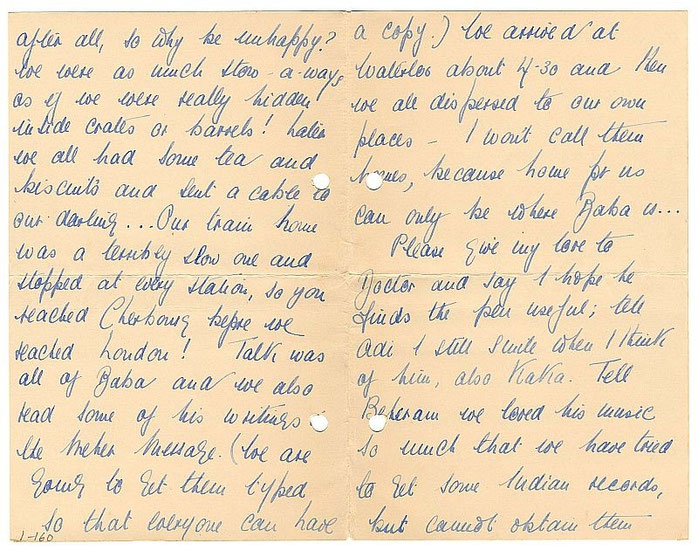 after all, so why be unhappy?
we were as much stow-a-ways
as if we were really hidden
inside crates or barrels! Later
we all had some tea and
biscuits and sent a cable to
our darling... Our train home
was a terribly slow one and
stopped at every station, so you
reached Cherbourg before we
reached London! Talk was
all of Baba and we also
read some of his writings in
the Meher Message. (We are
going to get them typed
so that everyone can have
1-160
a copy.) We arrived at
Waterloo about 4-30 and then
we all dispersed to our own
places - I won't call them
homes, because home for us
can only be where Baba is...
Please give my love to
Doctor and say I hope he
finds the pen useful; tell
Adi I still smile when I think
of him, also Kaka. Tell
Beheram we loved his music
so much that we have tried
to get some Indian records,
but cannot obtain them